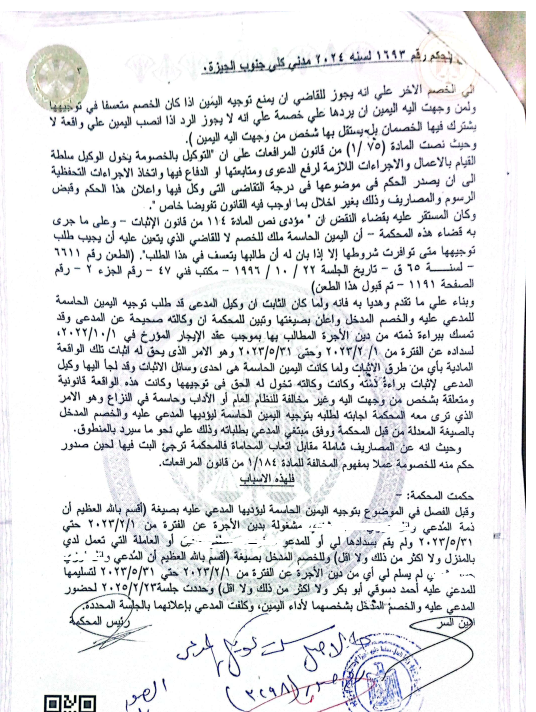 الحكم رقم ١٦٩٣ لسنه ٢٠٢٤ مدني كلي جنوب الجيزة.
٣
الي الخصم الاخر علي انه يجوز للقاضي ان يمنع توجيه اليمين اذا كان الخصم متعسفا في توجيهها
ولمن وجهت اليه اليمين ان يردها علي خصمة علي انه لا يجوز الرد اذا انصب اليمين علي واقعة لا
يشترك فيها الخصمان بل يستقل بها شخص من وجهت اليه اليمين ).
وحيث نصت المادة (١/ ٧٥) من قانون المرافعات على ان "التوكيل بالخصومة يخول الوكيل سلطة
القيام بالاعمال والاجراءات اللازمة لرفع الدعوى ومتابعتها او الدفاع فيها واتخاذ الاجراءات التحفظية
الى ان يصدر الحكم فى موضوعها فى درجة التقاضى التى وكل فيها واعلان هذا الحكم وقبض
الرسوم والمصاريف وذلك بغير اخلال بما اوجب فيه القانون تفويضا خاص ".
وكان المستقر عليه بقضاء النقض ان " مؤدى نص المادة ١١٤ من قانون الإثبات – وعلى ما جرى
به قضاء هذه المحكمة – أن اليمين الحاسمة ملك للخصم لا للقاضي الذي يتعين عليه أن يجيب طلب
توجيهها متى توافرت شروطها إلا إذا بان له أن طالبها يتعسف في هذا الطلب". (الطعن رقم ٦٦١١
– لسنـــة ٦٥ ق – تاريخ الجلسة ٢٢ / ١٠ / ١٩٩٦ – مكتب فني ٤٧ – رقم الجزء ٢ – رقم
الصفحة ١١٩١ – تم قبول هذا الطعن)
وبناء علي ما تقدم وهديا به فانه ولما كان الثابت ان وكيل المدعى قد طلب توجيه اليمين الحاسمة
للمدعي عليه والخصم المدخل واعلن بصيغتها وتبين للمحكمة ان وكالته صحيحة عن المدعى وقد
تمسك ببراءة ذمته من دين الأجرة المطالب بها بموجب عقد الإيجار المؤرخ في ٢٠٢٢/١٠/١،
لسداده عن الفترة من ٢٠٢٣/٢/١ وحتى ٢٠٢٣/٥/٣١ وهو الامر الذى يحق له اثبات تلك الواقعة
المادية بأي من طرق الإثبات ولما كانت اليمين الحاسمة هى احدى وسائل الاثبات وقد لجأ اليها وكيل
المدعى لإثبات براءة ذمته وكانت وكالته تخول له الحق فى توجيهها وكانت هذه الواقعة قانونية
ومتعلقة بشخص من وجهت اليه وغير مخالفة للنظام العام أو الآداب وحاسمة في النزاع وهو الامر
الذي ترى معه المحكمة اجابته لطلبه بتوجيه اليمين الحاسمة ليؤديها المدعي عليه والخصم المدخل
بالصيغة المعدلة من قبل المحكمة ووفق مبتغي المدعي بطلباته وذلك علي نحو ما سيرد بالمنطوق.
وحيث انه عن المصاريف شاملة مقابل اتعاب المحاماة فالمحكمة ترجئ البت فيها لحين صدور
حكم منه للخصومة عملا بمفهوم المخالفة للمادة ١/١٨٤ من قانون المرافعات.
فلهذه الاسباب
حكمت المحكمة: –
وقبل الفصل في الموضوع بتوجيه اليمين الحاسمة ليؤديها المدعي عليه بصيغة (أقسم بالله العظيم أن
ذمة المُدعي مشغولة بدين الأجرة عن الفترة من ٢٠٢٣/٢/١ حتي
٢٠٢٣/٥/٣١ ولم يقم بسدادها لي أو للمدعو أو العاملة التي تعمل لدي
بالمنزل ولا اكثر من ذلك ولا اقل) وللخصم المدخل بصيغة (أقسم بالله العظيم أن المُدعي
لم يسلم لي أي من دين الأجرة عن الفترة من ٢٠٢٣/٢/١ حتي ٢٠٢٣/٥/٣١ لتسليمها
للمدعي عليه أحمد دسوقي أبو بكر ولا اكثر من ذلك ولا اقل) وحددت جلسة ٢٠٢٥/٢/٢٣ لحضور
المدعي عليه والخصم المدخل بشخصهما لأداء اليمين، وكلفت المدعي بإعلانهما بالجلسة المحددة.
امين السر
رئيس المحكمة